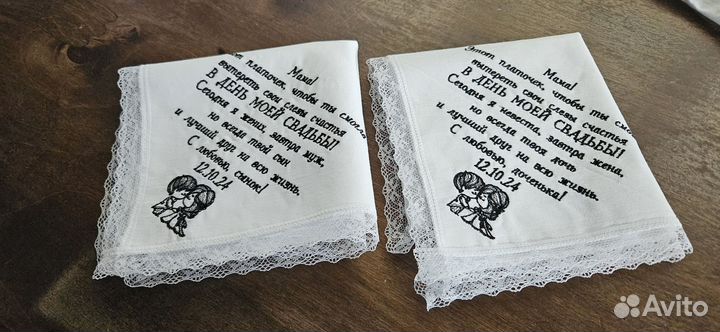 Мама!
Этот платочек, чтобы ты смогла
вытереть свои слёзы счастья
В ДЕНЬ МОЕЙ СВАДЬБЫ!
Сегодня я жених, завтра муж,
но всегда твой сын
и лучший друг на всю жизнь.
С любовью, сынок!
12.10.24
Мама!
Этот платочек, чтобы ты смогла
вытереть свои слёзы счастья
В ДЕНЬ МОЕЙ СВАДЬБЫ!
Сегодня я невеста, завтра жена,
но всегда твоя дочь
и лучший друг на всю жизнь.
С любовью, доченька!
12.10.24
Avito